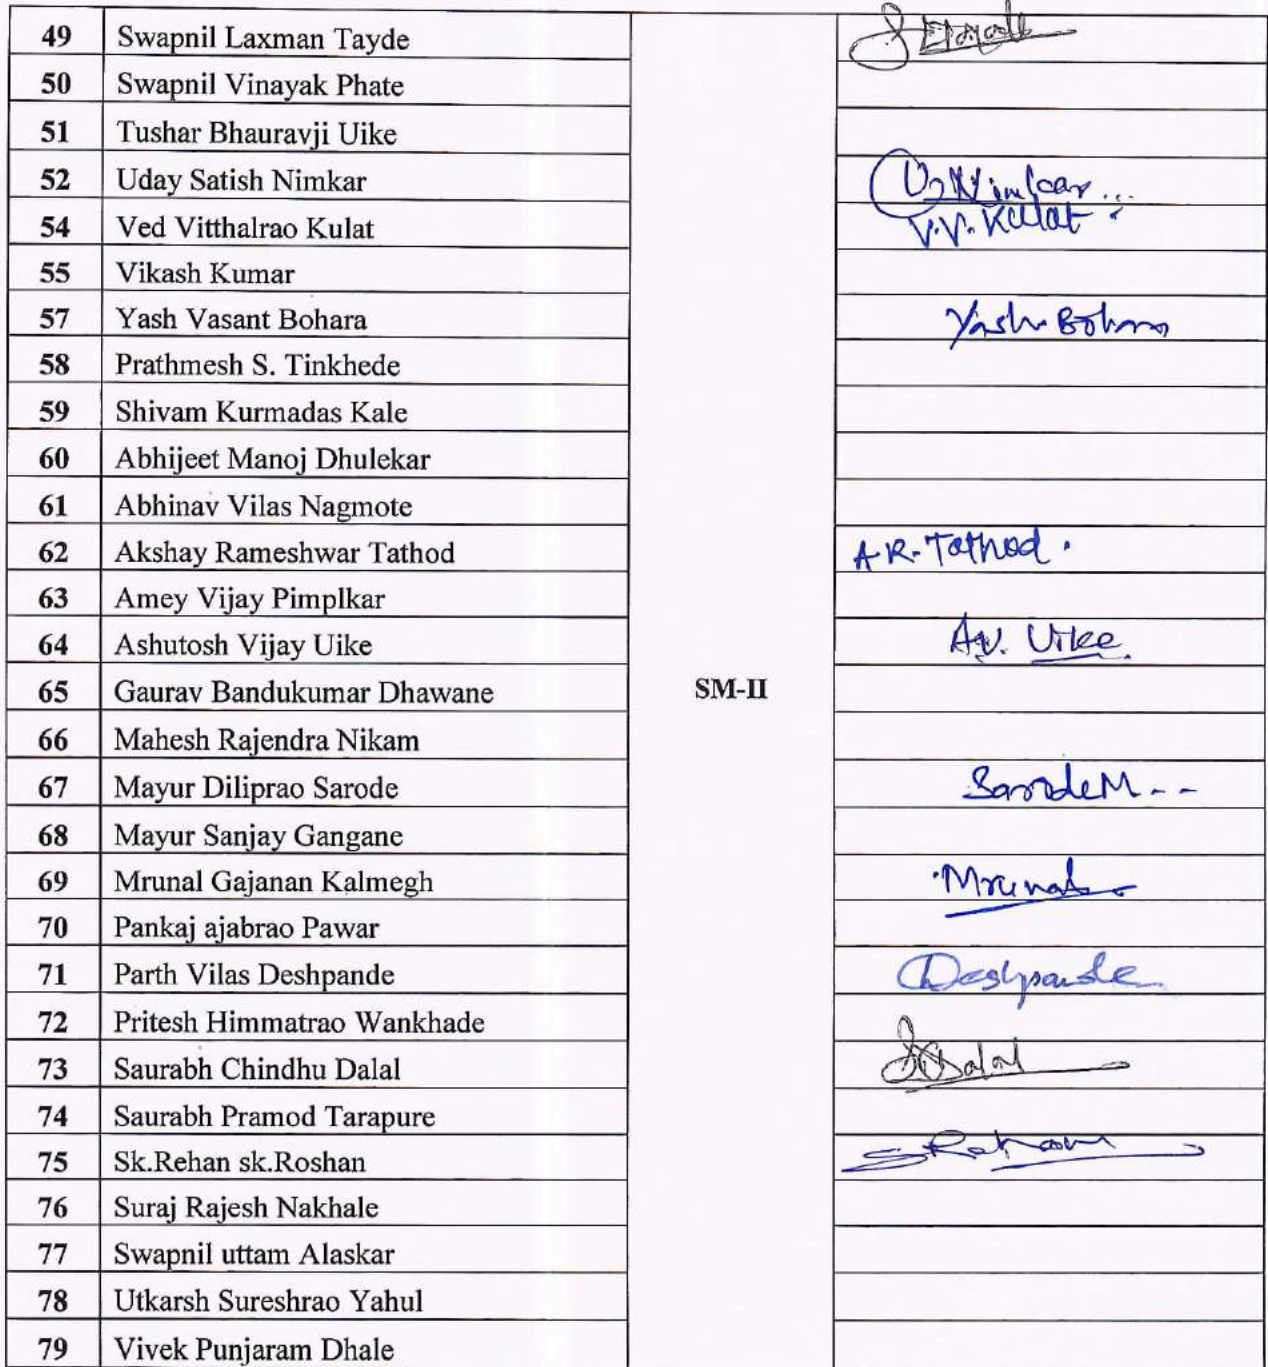 49 Swapnil Laxman Tayde
50 Swapnil Vinayak Phate
51 Tushar Bhauravji Uike
52 Uday Satish Nimkar U. Nimkar...
54 Ved Vitthalrao Kulat V.V. Kulat
55 Vikash Kumar
57 Yash Vasant Bohara Yash Bohara
58 Prathmesh S. Tinkhede
59 Shivam Kurmadas Kale
60 Abhijeet Manoj Dhulekar
61 Abhinav Vilas Nagmote
62 Akshay Rameshwar Tathod A-R-Tathod.
63 Amey Vijay Pimplkar
64 Ashutosh Vijay Uike A.V. Uikee
65 Gaurav Bandukumar Dhawane SM-II
66 Mahesh Rajendra Nikam
67 Mayur Diliprao Sarode Sarode M--
68 Mayur Sanjay Gangane
69 Mrunal Gajanan Kalmegh Mrunal
70 Pankaj ajabrao Pawar
71 Parth Vilas Deshpande Deshpande
72 Pritesh Himmatrao Wankhade
73 Saurabh Chindhu Dalal Dalal
74 Saurabh Pramod Tarapure
75 Sk.Rehan sk.Roshan SRehan
76 Suraj Rajesh Nakhale
77 Swapnil uttam Alaskar
78 Utkarsh Sureshrao Yahul
79 Vivek Punjaram Dhale